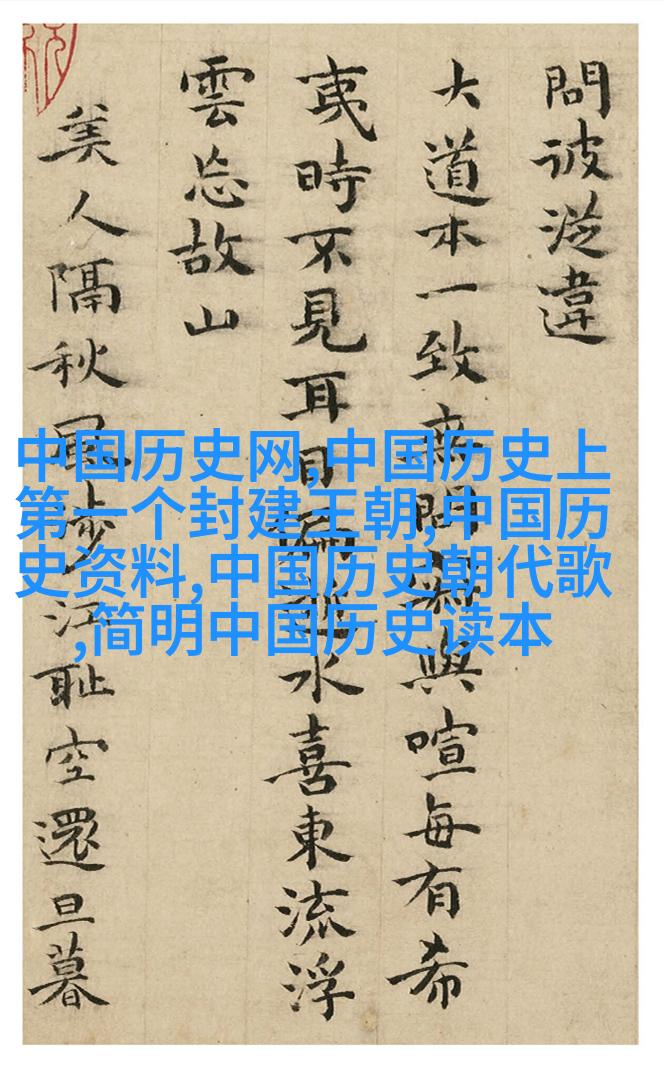 問彼違
大道本一致與喧每有希
夷時不見耳目水喜東流浮
雲忘故山
美人隔秋風涉江耻空還旦暮
中国历史网,中国历史上
第一个封建王朝,中国历
史资料,中国历史朝代歌
,简明中国历史读本